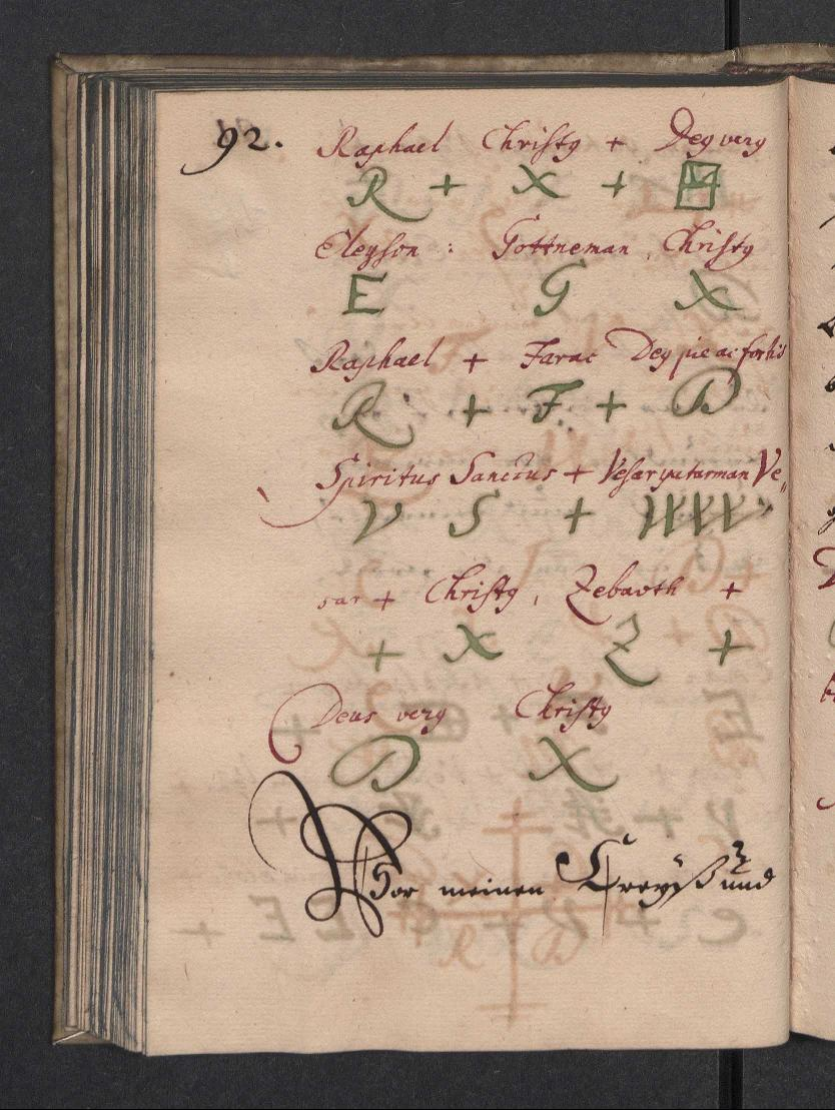 92. Raphael Christy + Dey very
R + X +
Eleyson : Gottneman , Christy
E G X
Raphael + Farac Dey pie ac fortis
R + F + D
Spiritus Sanctus + Vesar yatarman Ve„
V S +
sar + Christy , Zebaoth +
+ X Z +
Deus very Christy
D X
Vor meinen Creyß und